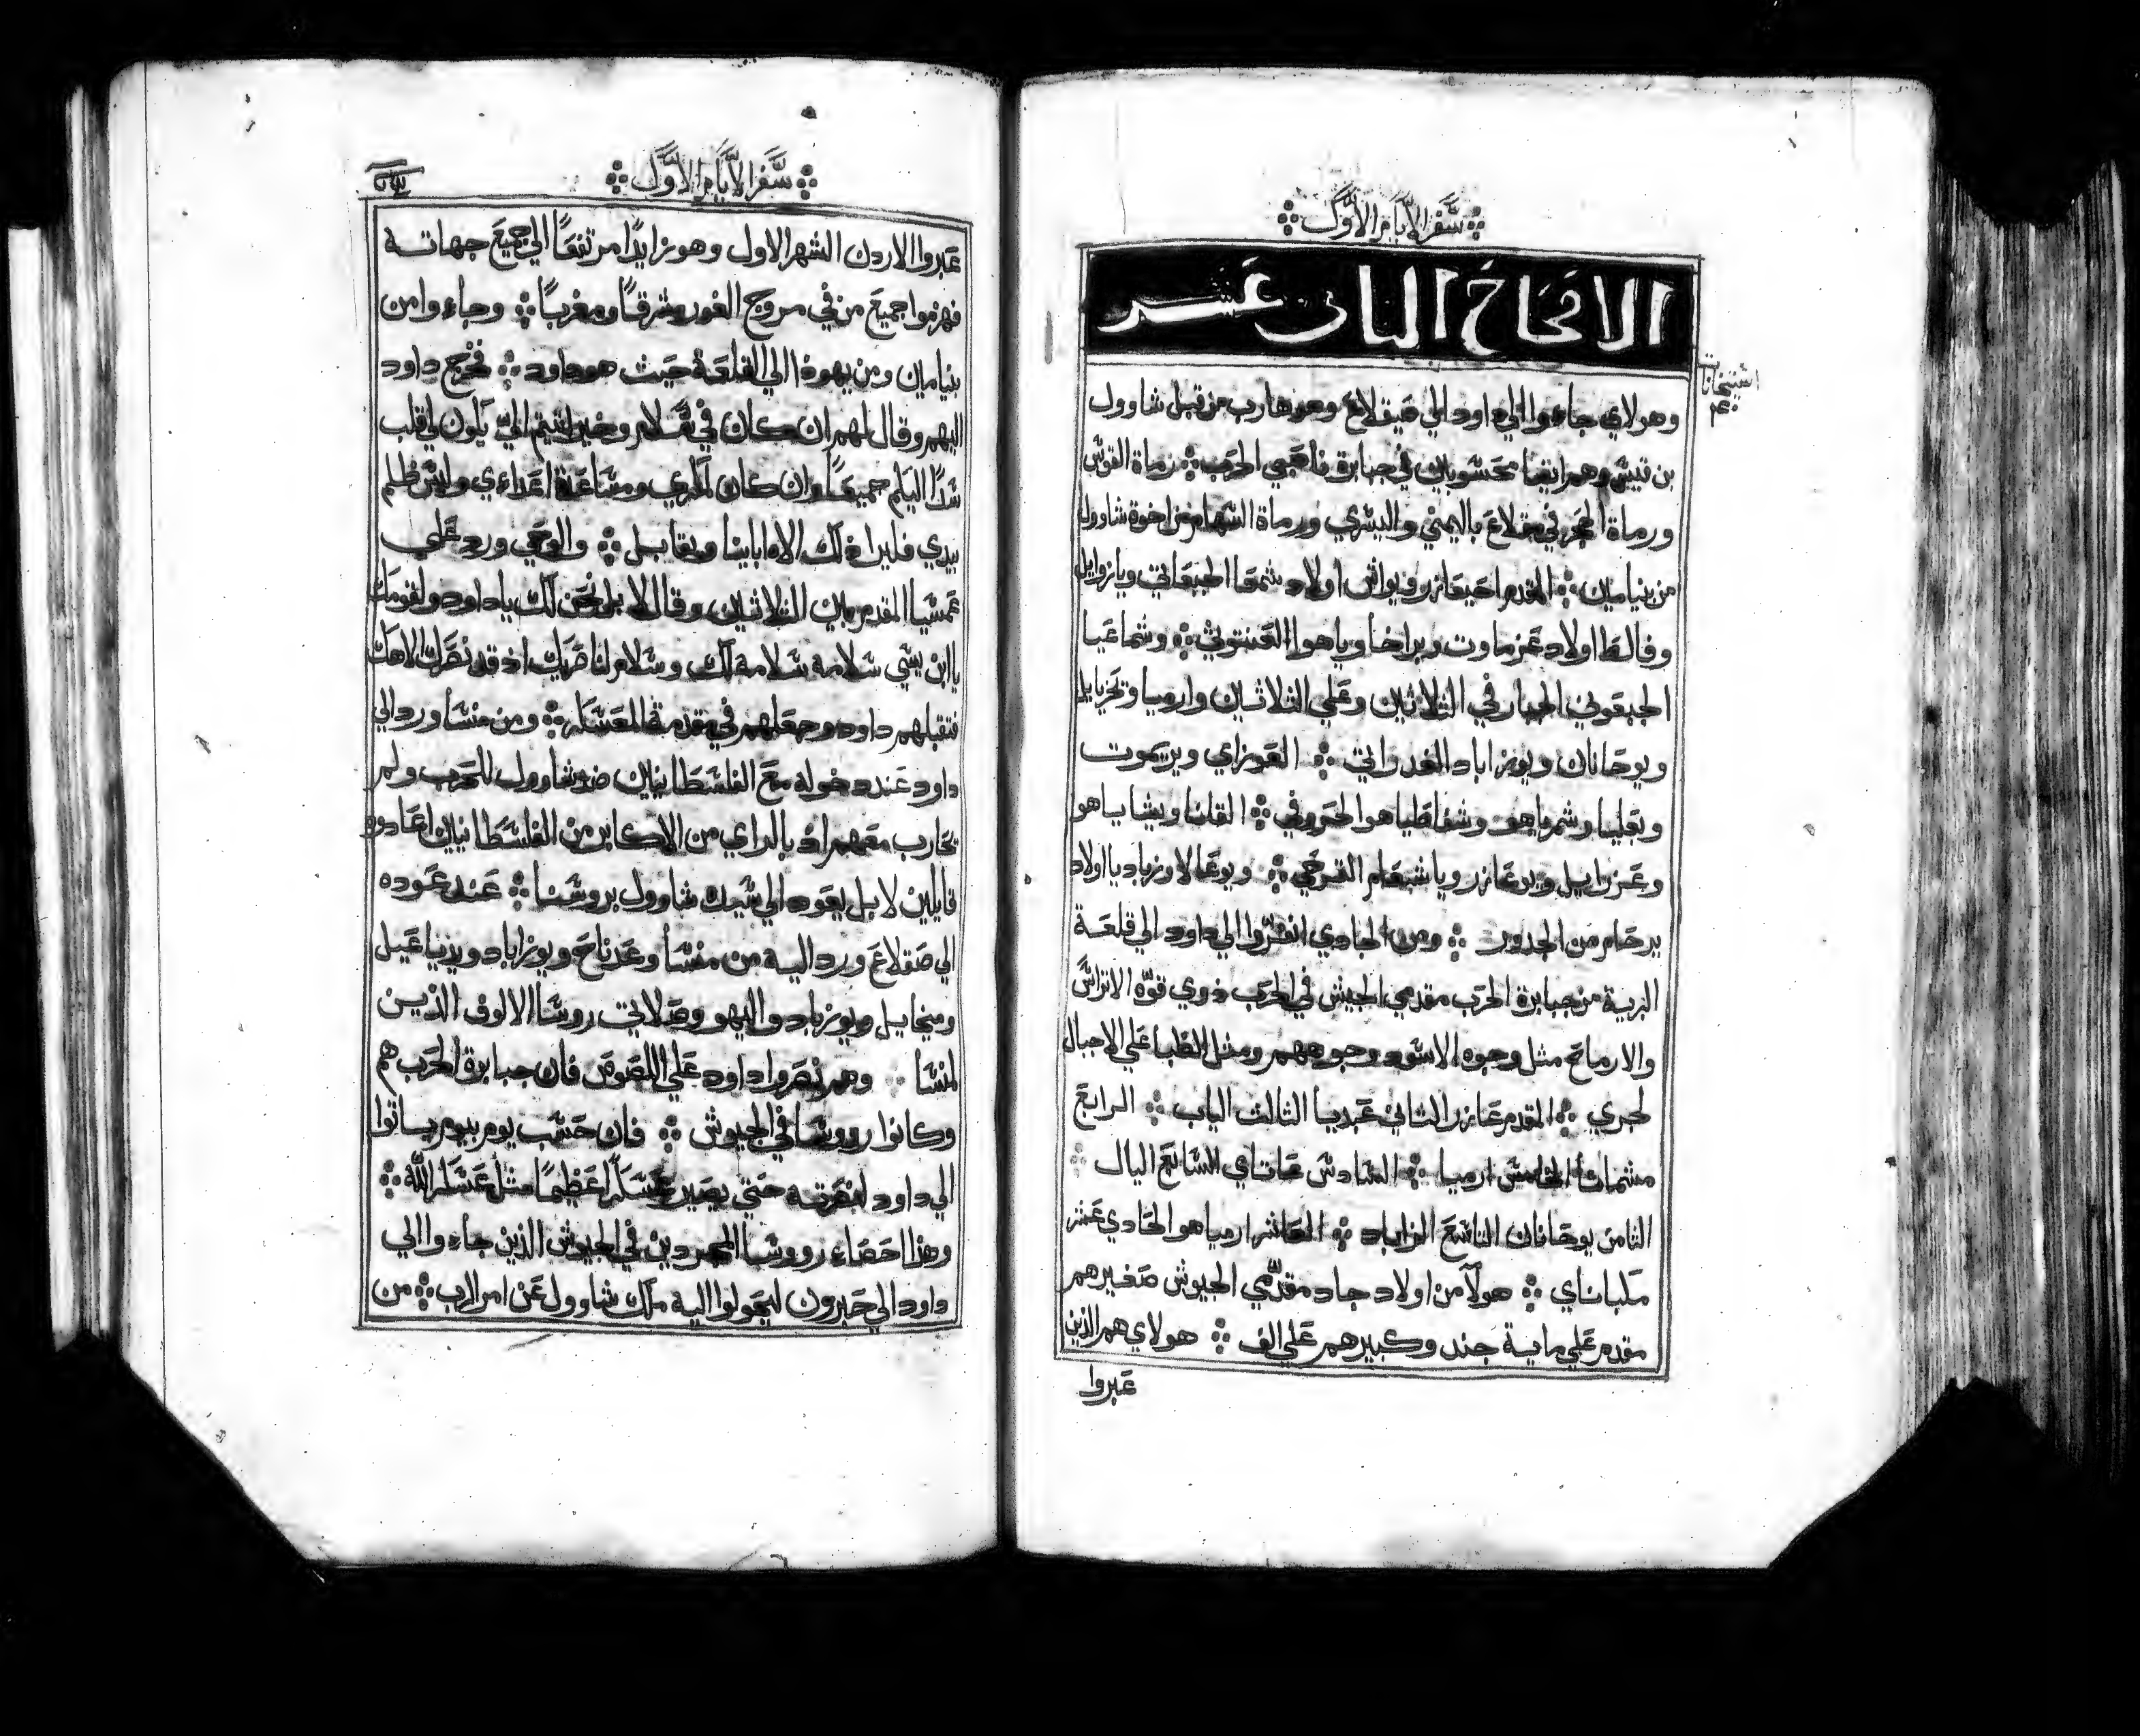 سفر الايام الاول
الافتتاح الثاني عشر
استيخانات
٤٠
وهولاي جاءوا الي داود الي صيقلاغ وهو هارب من قبل شاوول
بن قيش وهم ايضا محسوبين في جبابرة ناصبي الحرب رماة القوس
ورماة الحجر في مقلاع باليمني واليسري ورماة السهام من اخوة شاوول
من بنيامين المقدم احيعازر ويواش اولاد شمعا الجبعاتي ويازوايل
وفالط اولاد عزماوت وبراخا وياهوا العنتوتي وشماعيا
الجبعوني الجبار في الثلاثين وعلي الثلاثين وارميا وتحزيايل
ويوحانان ويوزاباد الغدراتي العوزاي ويريموت
وبعليا وشمرياهو وشفاطياهوا الحروفي القانا ويشاياهو
وعزرايل ويوعازر وياشبعام القرحي ويوعالا وزباديا اولاد
يرحام من الجدور ومن الجادي انفرزوا الي داود الي قلعة
البرية من جبابرة الحرب مقدمي الجيش في الحرب ذوي قوة الاتراس
والارماح مثل وجوه الاسود وجوههم ومثل الظبا علي الاجبال
لجري المقدم عازر الثاني عبديا الثالث الياب الرابع
مشمانا الخامس ارميا السادس عاتاي السابع اليال
الثامن يوحانان التاسع الزاباد العاشر ارمياهوا الحادي عشر
مكباناي هولاء من اولاد جاد مقدمي الجيوش صغيرهم
مقدم علي ماية جند وكبيرهم علي الف هولاي هم الذين
عبروا
سفر الايام الاول
عبروا الاردن الشهر الاول وهو زايدا مرتفعا الي جميع جهاته
فهزموا جميع من في مروج الغور وشرقا ومغربا وجاءوا من
بنيامين ومن يهوذا الي القلعة حيث هو داود فخرج داود
اليهم وقال لهم ان كان في سلام وخير اتيتم الي يكون لي قلب
شدا اليكم جميعا وان كان لمكري ومساعدة اعداءي وليس ظلم
بيدي فليرا ذلك الاه اباينا ويقابل والوحي ورد علي
عمشيا المقدم من الثلاثين وقال لا بل نحن لك يا داود ولقومك
يا ابن يسي سلامة سلامة لك وسلام لناصريك اذ قد نصرك الاهك
فتقبلهم داود وجعلهم في مقدمة العسكر ومن منشا ورد الي
داود عند دخوله مع الفلسطانيين ضد شاوول للحرب ولم
تحارب معهم اذ بالراي من الاكابر من الفلسطانيين اعادوه
قايلين لا بل يعود الي سيده شاوول بروسنا عند عوده
الي صقلاغ ورد اليه من منشا وعدناح ويوزاباد ويديناعيل
وميخايل ويوزاباد واليهو وصلاتي روسا الالوف الذين
لمنشا وهم نصروا داود علي اللصوص فان جبابرة الحرب هم
وكانوا رووسا في الجيوش فان حسب يوم بيوم ياتوا
الي داود لنصرته حتي يصير عسكرا عظيما مثل عسكر الله
وهذا احصاء رووسا المجردين في الجيوش الذين جاءوا الي
داود الي حبرون ليحولوا اليه ملك شاوول عن امر الرب من